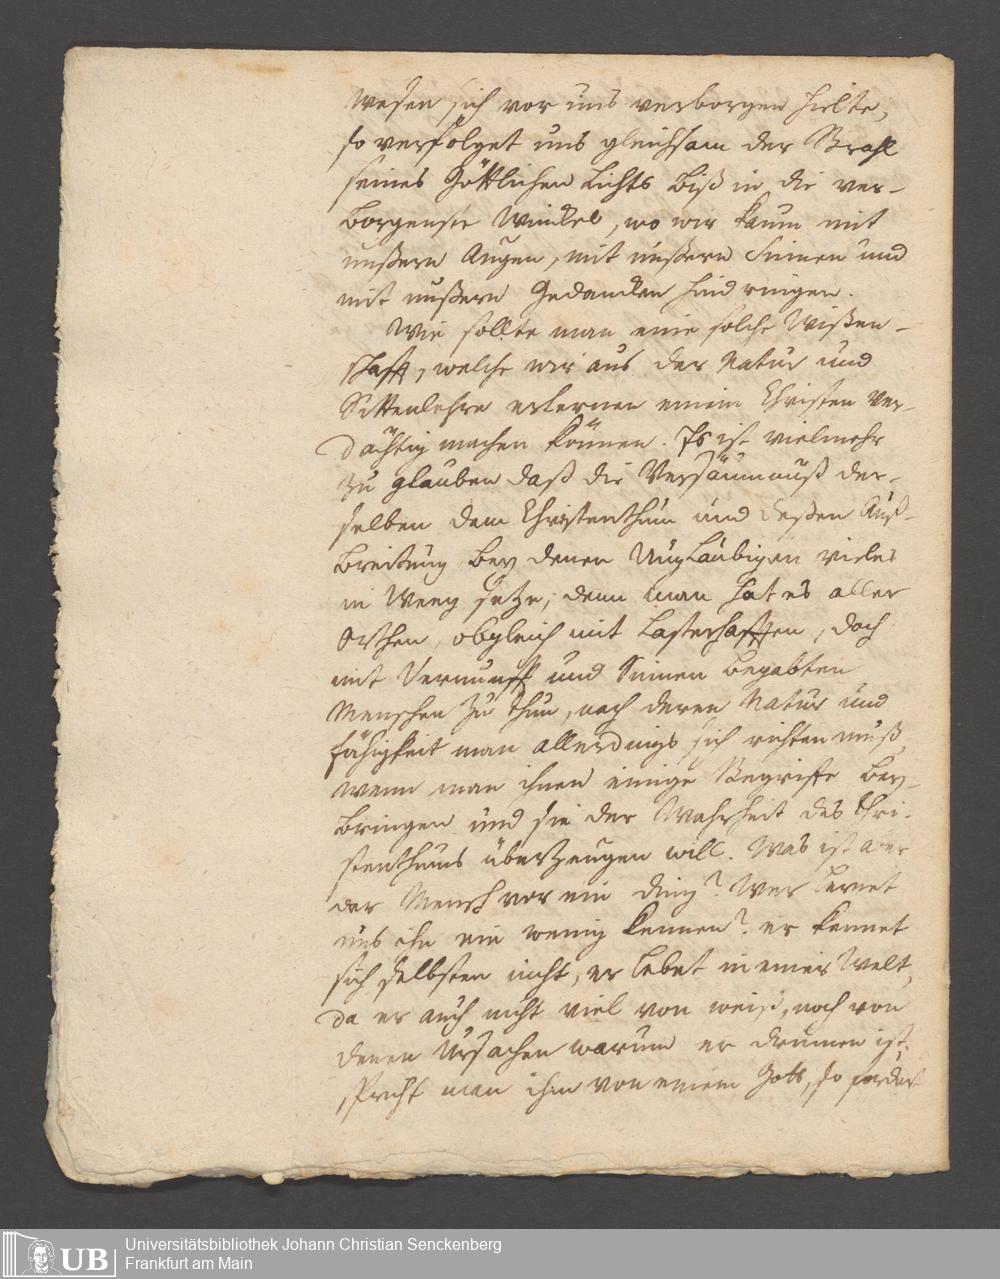 Wesen sich vor uns verborgen hielte,
so verfolget uns gleichsam der Strahl
seines Göttlichen Lichts biß in die ver-
borgenste Winckel, wo wir kaum mit
unßern Augen, mit unßern Sinnen und
mit unßern Gedancken hind ringen.
Wie sollte man eine solche Wißen-
schafft, welche wir aus der Natur und
Sittenlehre erlernen einem Christen ver-
dächtig machen können. Es ist vielmehr
zu glauben daß die Versäumnuß der-
selben dem Christenthum und deßen Auß-
breitung bey denen Ungläubigen vieles
in Weeg setze; denn man hat es aller
Orthen, obgleich mit Lasterhafften, doch
mit Vernunfft und Sinnen begabten
Menschen zu thun, nach deren Natur und
fähigkeit man allerdings sich richten muß,
wenn man ihnen einige Begriffe bey-
bringen und sie der Wahrheit des Chri-
stenthums überzeugen will. Was ist aber
der Mensch vor ein Ding? Wer lernet
uns ihn ein wenig kennen? er kennet
sich selbsten nicht, er lebet in einer Welt,
da er auch nicht viel von weiß, noch von
denen Ursachen warum er drinnen ist;
spricht man ihm von einem Gott, so fordert
Universitätsbibliothek Johann Christian Senckenberg
UB Frankfurt am Main